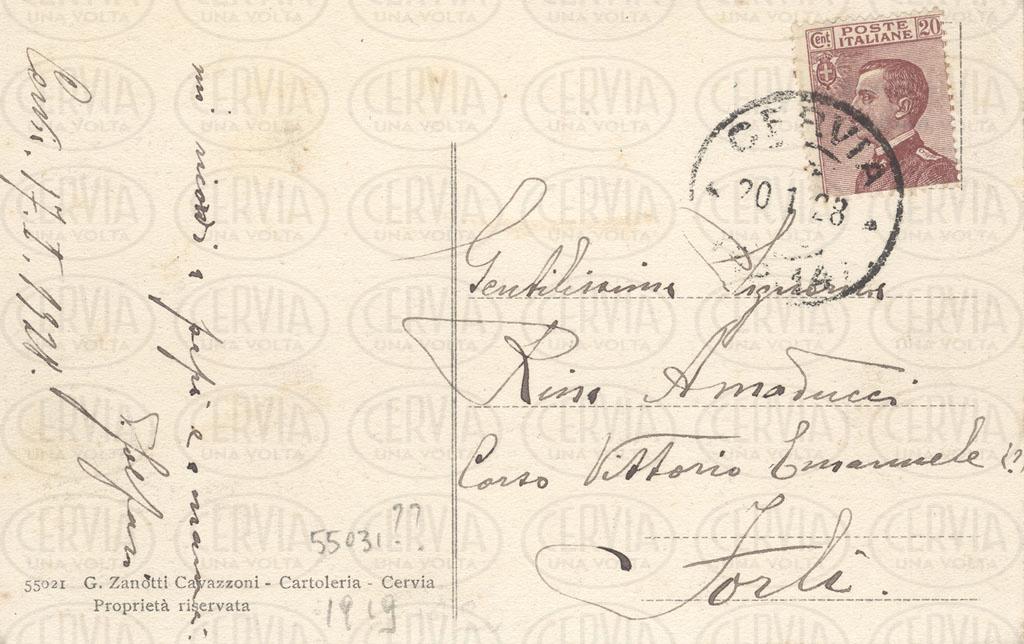 Cent POSTE ITALIANE 20
CERVIA
20 1 28
Gentilissima Signorina
Rina Amaducci
Corso Vittorio Emanuele (?)
Forlì.
mi ricordi a papà e mamà.
55031??
1919
55021 G. Zanotti Cavazzoni - Cartoleria - Cervia
Proprietà riservata
CERVIA
UNA VOLTA